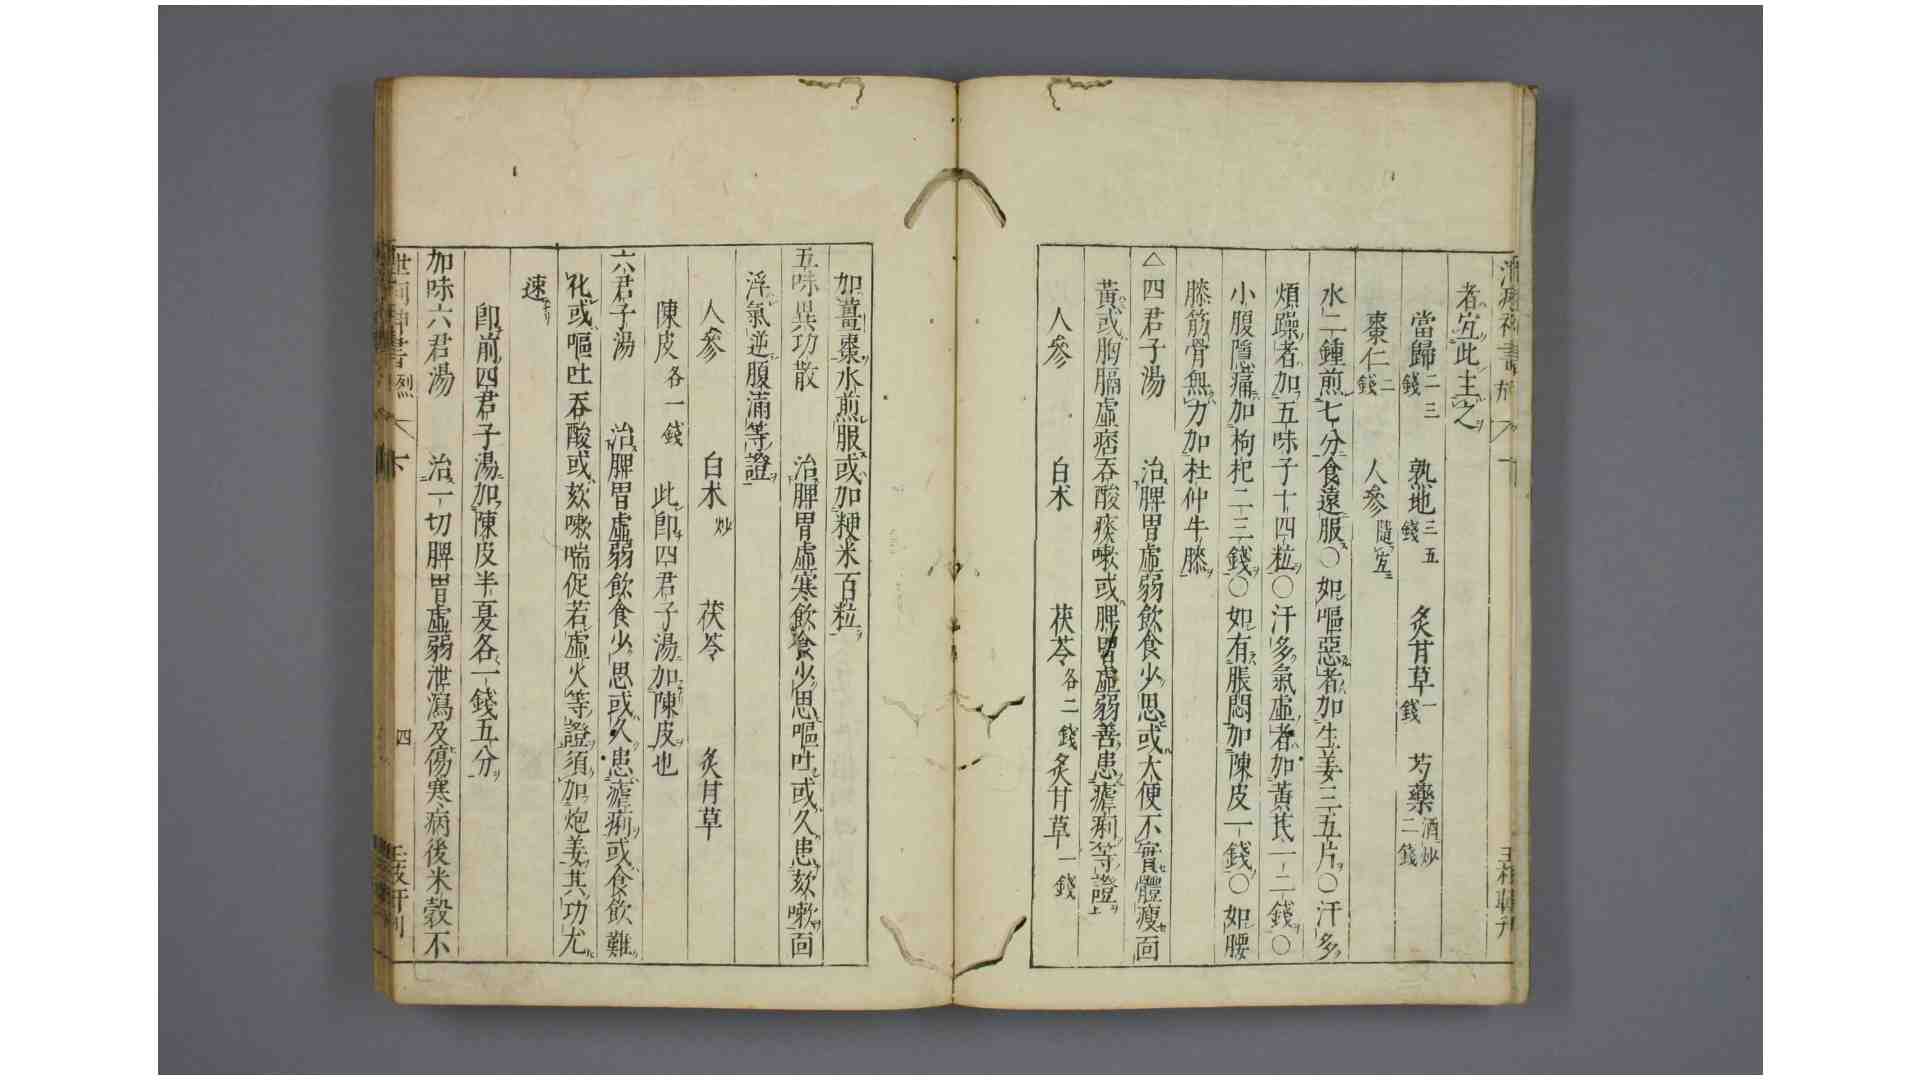 者宜此主之
當歸二三錢 熟地三五錢 炙甘草一錢 芍藥酒炒二錢
棗仁二錢 人參隨宜
水二鍾煎七分食遠服○如嘔惡者加生姜三五片○汗多
煩躁者加五味子十四粒○汗多氣虛者加黃芪一二錢○
小腹隱痛加枸杞二三錢○如有脹悶加陳皮一錢○如腰
膝筋骨無力加杜仲牛膝
△四君子湯 治脾胃虛弱飲食少思或大便不實體瘦面
黃或胸膈虛痞吞酸痰嗽或脾胃虛弱善患瘧痢等證
人參 白朮 茯苓各二錢 炙甘草一錢
如薑棗水煎服或加粳米百粒
五味異功散 治脾胃虛寒飲食少思嘔吐或久患欬嗽面
浮氣逆腹滿等證
人參 白朮炒 茯苓 炙甘草
陳皮各一錢 此即四君子湯加陳皮也
六君子湯 治脾胃虛弱飲食少思或久患瘧痢或食飲難
化或嘔吐吞酸或欬嗽喘促若虛火等證須加炮姜其功尤
速
即前四君子湯加陳皮半夏各一錢五分
加味六君湯 治一切脾胃虛弱泄瀉及傷寒病後米穀不
四